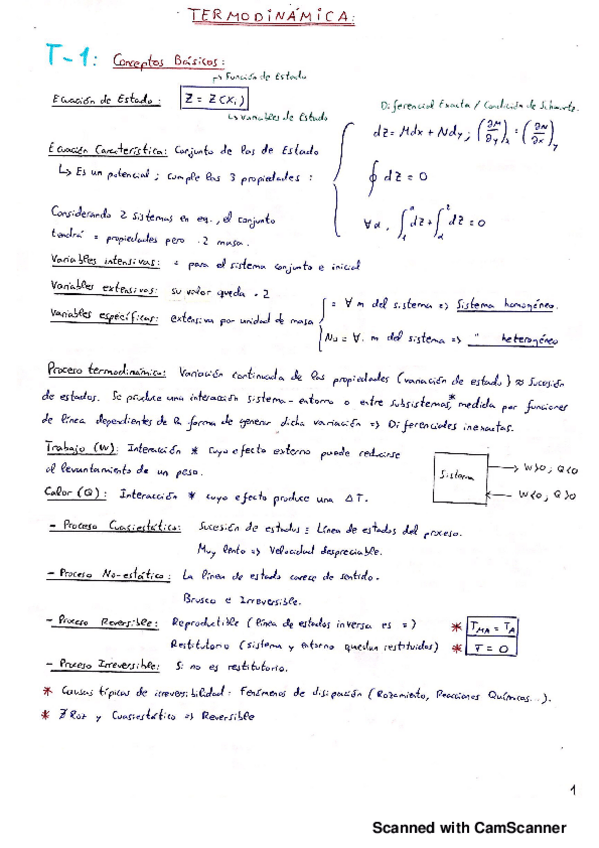 TERMODINÁMICA:
T-1: Conceptos Básicos:
↳ Función de Estado
Ecuación de Estado: Z = Z(Xi)
↳ Variables de Estado
Diferencial Exacta / Condición de Schwartz.
dZ = Mdx + Ndy; (∂M/∂y)x = (∂N/∂x)y
Ecuación Característica: Conjunto de las de Estado
↳ Es un potencial; cumple las 3 propiedades:
∮ dZ = 0
Considerando 2 sistemas en eq., el conjunto
tendrá = propiedades pero ·2 masa.
∀α, ∫₁^α dZ + ∫_α^2 dZ = 0
Variables intensivas: = para el sistema conjunto e inicial
Variables extensivas: su valor queda ·2
Variables específicas: extensiva por unidad de masa
= ∀ m del sistema => Sistema homogéneo.
No = ∀ m del sistema => " heterogéneo
Proceso termodinámico: Variación continuada de las propiedades (variación de estado) ≈ Sucesión
de estados. Se produce una interacción sistema-entorno o entre subsistemas,* medida por funciones
de línea dependientes de la forma de generar dicha variación => Diferenciales inexactas.
Trabajo (W): Interacción * cuyo efecto externo puede reducirse
al levantamiento de un peso.
Sistema
W>0; Q<0
W<0; Q>0
Calor (Q): Interacción * cuyo efecto produce una ΔT.
- Proceso Cuasiestático: Sucesión de estados ≡ Línea de estados del proceso.
Muy lento => Velocidad despreciable.
- Proceso No-estático: La línea de estado carece de sentido.
Brusco e Irreversible.
- Proceso Reversible: Reproductible (línea de estados inversa es =) * TMA = TA
Restitutorio (sistema y entorno quedan restituidos) * τ = 0
- Proceso Irreversible: Si no es restitutorio.
* Causas típicas de irreversibilidad: Fenómenos de disipación (Rozamiento, Reacciones Químicas...).
* ∄ Roz y Cuasiestático => Reversible
1
Scanned with CamScanner